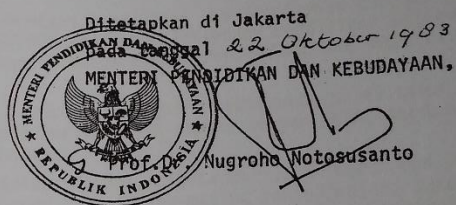 Ditetapkan di Jakarta
pada tanggal 22 Oktober 1983
MENTERI PENDIDIKAN DAN KEBUDAYAAN,
MENTERI PENDIDIKAN DAN KEBUDAYAAN
REPUBLIK INDONESIA
Prof.Dr. Nugroho Notosusanto